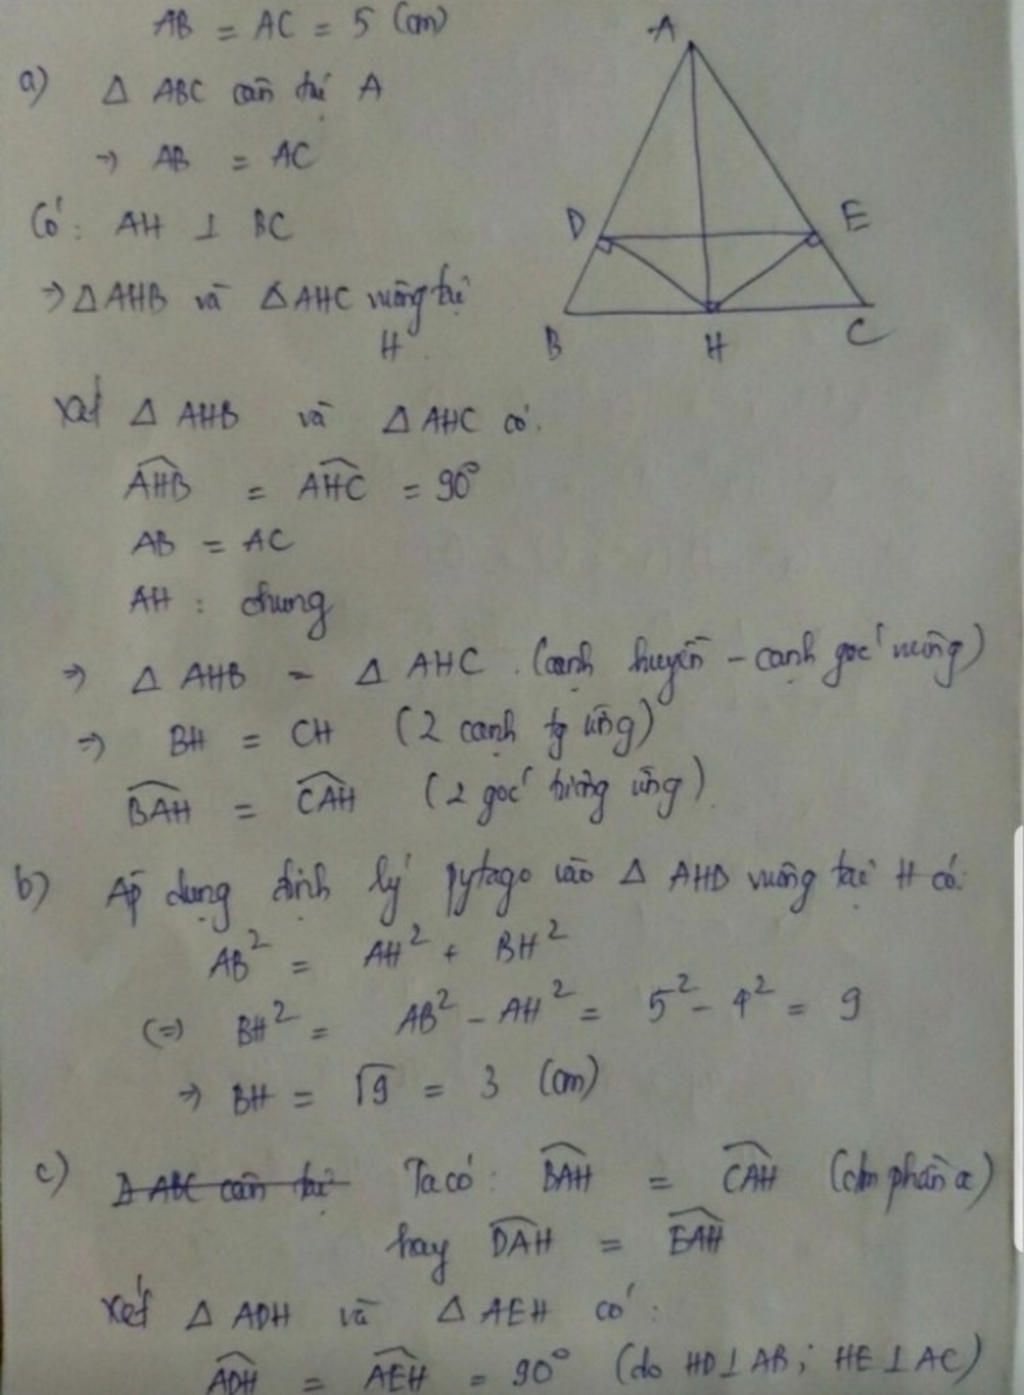 AB = AC = 5 (cm)
a) Δ ABC cân tại A
→ AB = AC
Có: AH ⊥ BC
→ Δ AHB và Δ AHC vuông tại
H.
Xét Δ AHB và Δ AHC có:
A
D
E
B
H
C
\widehat{AHB} = \widehat{AHC} = 90°
AB = AC
AH : chung
⇒ Δ AHB = Δ AHC. (cạnh huyền - cạnh góc vuông)
⇒ BH = CH (2 cạnh tg ứng)
\widehat{BAH} = \widehat{CAH} (2 góc tương ứng).
b) Áp dụng định lý pytago vào Δ AHB vuông tại H có:
AB² = AH² + BH²
(=) BH² = AB² - AH² = 5² - 4² = 9
→ BH = √9 = 3 (cm)
c) Δ ABC cân tại Ta có: \widehat{BAH} = \widehat{CAH} (cm phần a)
hay \widehat{DAH} = \widehat{EAH}
Xét Δ ADH và Δ AEH có:
\widehat{ADH} = \widehat{AEH} = 90° (do HD⊥AB; HE⊥AC)